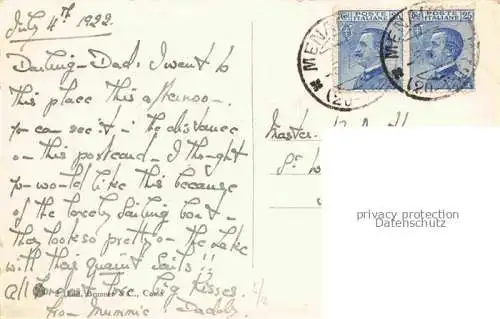 July 4th 1922.
Darling - Dad. I went to
this place this afternoo-
yo- can see it i- the distance
o- this postcard - I tho-ght
yo- would like this because
of the lovely sailing boat -
they look so pretty o- the Lake
with their quaint sails!!
All fondest love & big kisses.
fro- Mummie & Dadoh
Ed. Brunner & C., Como
POSTE ITALIANE
POSTE ITALIANE
MENA
(20
MENA
(20
Master.
privacy protection
Datenschutz